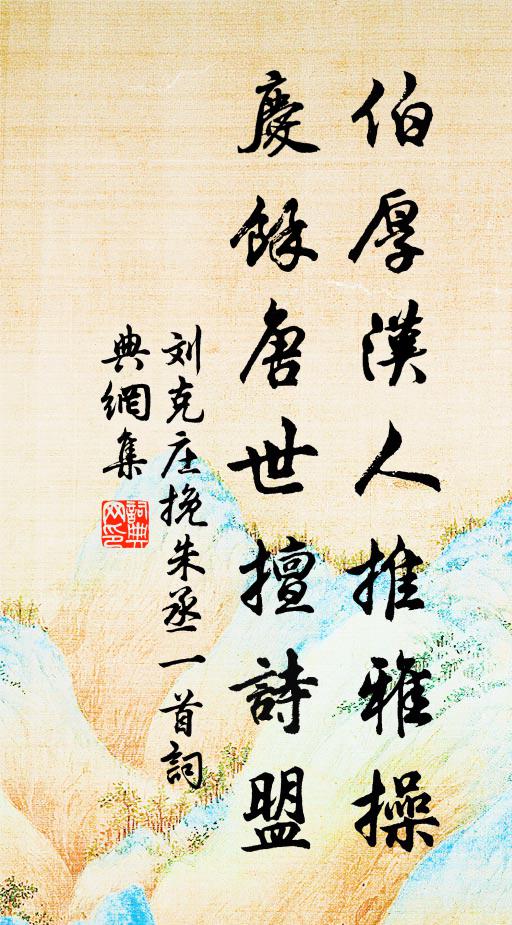 伯厚漢人推雅操
慶餘唐世擅詩盟
刘克庄挽朱丞一首詞
典網集
詞典網印